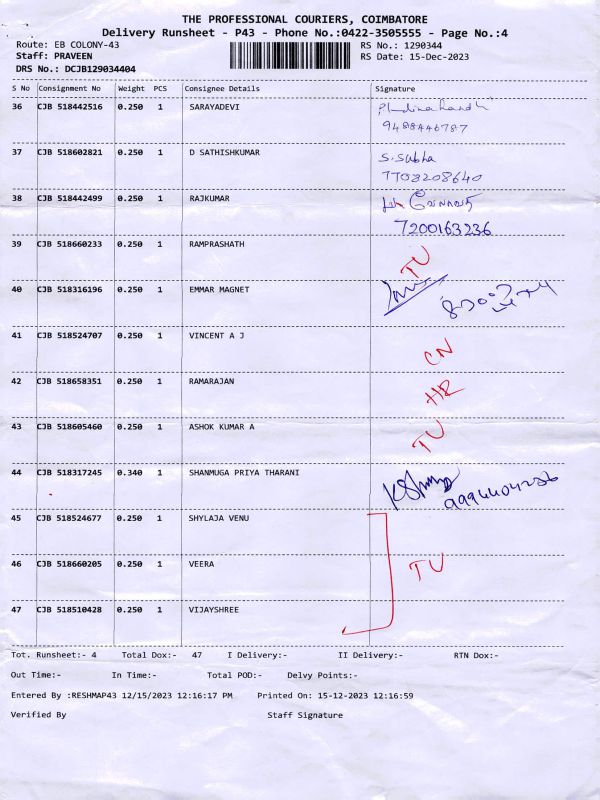 THE PROFESSIONAL COURIERS, COIMBATORE
Delivery Runsheet - P43 - Phone No.:0422-3505555 - Page No.:4
Route: EB COLONY-43 RS No.: 1290344
Staff: PRAVEEN RS Date: 15-Dec-2023
DRS No.: DCJB129034404
S No Consignment No Weight PCS Consignee Details Signature
36 CJB 518442516 0.250 1 SARAYADEVI
9488446787
37 CJB 518602821 0.250 1 D SATHISHKUMAR S.Subha
7703208640
38 CJB 518442499 0.250 1 RAJKUMAR
7200163236
39 CJB 518660233 0.250 1 RAMPRASHATH TU
40 CJB 518316196 0.250 1 EMMAR MAGNET
41 CJB 518524707 0.250 1 VINCENT A J CN
42 CJB 518658351 0.250 1 RAMARAJAN HR
43 CJB 518605460 0.250 1 ASHOK KUMAR A TU
44 CJB 518317245 0.340 1 SHANMUGA PRIYA THARANI
45 CJB 518524677 0.250 1 SHYLAJA VENU
46 CJB 518660205 0.250 1 VEERA TU
47 CJB 518510428 0.250 1 VIJAYSHREE
Tot. Runsheet:- 4 Total Dox:- 47 I Delivery:- II Delivery:- RTN Dox:-
Out Time:- In Time:- Total POD:- Delvy Points:-
Entered By :RESHMAP43 12/15/2023 12:16:17 PM Printed On: 15-12-2023 12:16:59
Verified By Staff Signature